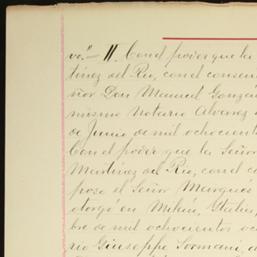 vo."— II. Con el poder que la
tínez del Rio, con el consen
ñor Don Manuel Gonzá
mismo Notario Alvarez
de Junio de mil ochocient
Con el poder que la Señor
Martínez del Rio, con el co
poso el Señor Marqués
otorgó en Milán, Italia,
bre de mil ochocientos oc
rio Giuseppe